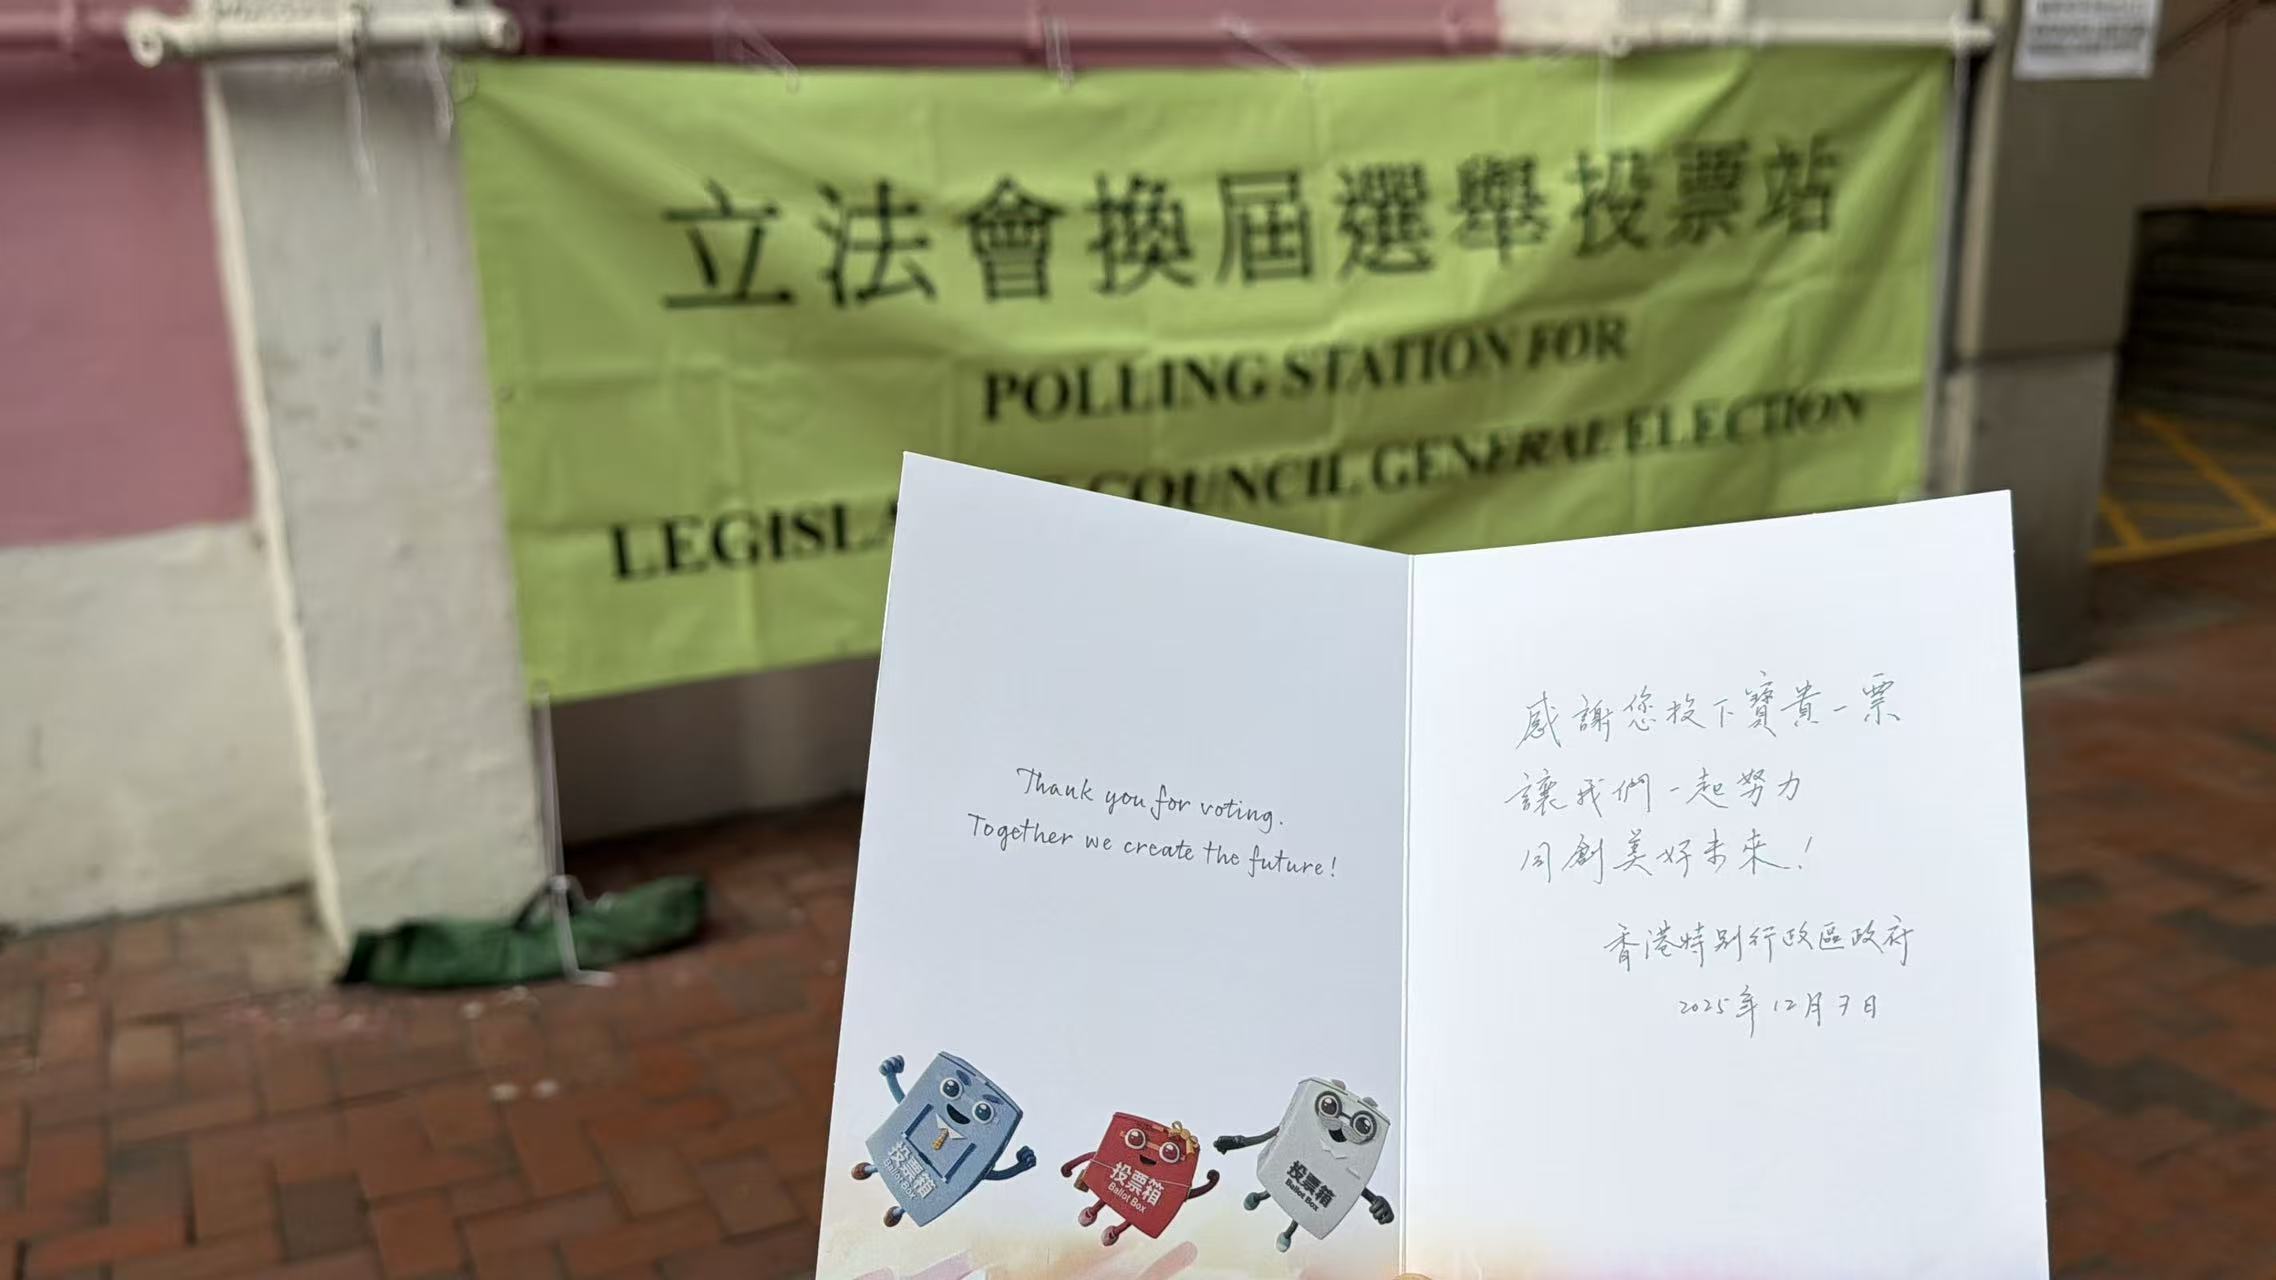 立法會換屆選舉投票站
POLLING STATION FOR
COUNCIL GENERAL ELECTION
Thank you for voting.
Together we create the future!
感謝您投下寶貴一票
讓我們一起努力
同創美好未來！
香港特別行政區政府
2025年12月7日
投票箱
Ballot Box
投票箱
Ballot Box
投票箱
Ballot Box